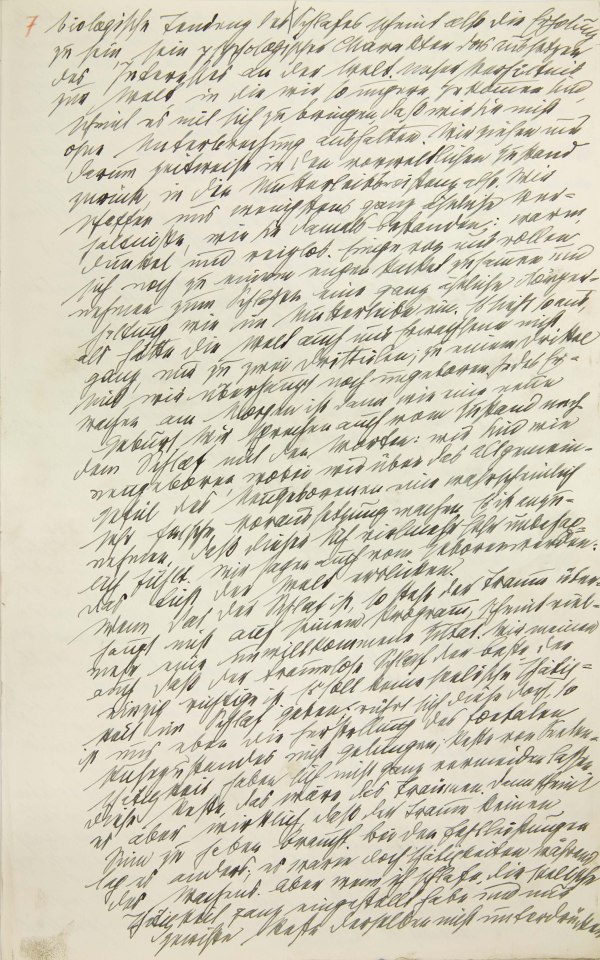 7 biologische Tendenz des Schlafes scheint also die Erholung
zu sein, sein psychologischer Charakter das Aussetzen
des Interesses an der Welt. Unser Verhältnis
zur Welt, in die wir so ungern gekommen sind,
scheint es mit sich zu bringen, daß wir sie nicht
ohne Unterbrechung aushalten. Wir ziehen uns
darum zeitweise in den vorweltlichen Zustand
zurück, in die Mutterleibsexistenz also. Wir
schaffen uns wenigstens ganz ähnliche Ver-
hältnisse, wie sie damals bestanden: warm,
dunkel und reizlos. Einige von uns rollen
sich noch zu einem engen Paket zusammen und
nehmen zum Schlafen eine ganz ähnliche Körper-
haltung wie im Mutterleibe ein. Es sieht so aus,
als hätte die Welt auch uns Erwachsene nicht
ganz, nur zu zwei Dritteilen; zu einem Drittel
sind wir überhaupt noch ungeboren. Jedes Er-
wachen am Morgen ist dann wie eine neue
Geburt. Wir sprechen auch vom Zustand nach
dem Schlaf mit den Worten: wir sind wie
neugeboren, wobei wir über das Allgemein-
gefühl des Neugeborenen eine wahrscheinlich
sehr falsche Voraussetzung machen. Es ist anzu-
nehmen, daß dieser sich vielmehr sehr unbehag-
lich fühlt. Wir sagen auch vom Geborenwerden:
das Licht der Welt erblicken.
Wenn das der Schlaf ist, so steht der Traum über-
haupt nicht auf seinem Programm, scheint viel-
mehr eine unwillkommene Zutat. Wir meinen
auch, daß der traumlose Schlaf der beste, der
einzig richtige ist. Es soll keine seelische Tätig-
keit im Schlaf geben; rührt sich diese doch, so
ist uns eben die Herstellung des foetalen
Ruhezustandes nicht gelungen; Reste von Seelen-
tätigkeit haben sich nicht ganz vermeiden lassen.
Diese Reste, das wäre das Träumen. Dann scheint
es aber wirklich, daß der Traum keinen
Sinn zu haben braucht. Bei den Fehlleistungen
lag es anders; es waren doch Tätigkeiten während
des Wachens. Aber wenn ich schlafe, die seelische
Tätigkeit ganz eingestellt habe und nur
gewisse Reste derselben nicht unterdrücken